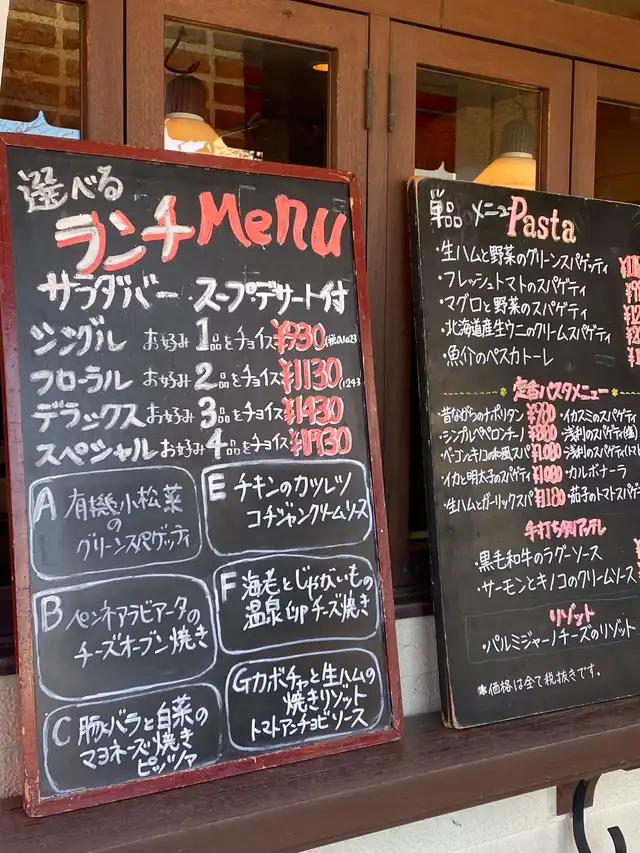 選べる
ランチMenu
サラダバー・スープデザート付
シングル お好み1品をチョイス¥930
フローラル お好み2品をチョイス¥1130
デラックス お好み3品をチョイス¥1430
スペシャル お好み4品をチョイス¥1730
A 有機小松菜
の
グリーンスパゲッティ
B ペンネアラビアータの
チーズオーブン焼き
C 豚バラと白菜の
マヨネーズ焼き
ピッツァ
E チキンのカツレツ
コチジャンクリームソース
F 海老とじゃがいもの
温泉卵チーズ焼き
Gカボチャと生ハムの
焼きリゾット
トマトアンチョビソース
単品メニュー Pasta
・生ハムと野菜のグリーンスパゲッティ
・フレッシュトマトのスパゲティ
・マグロと野菜のスパゲティ
・北海道産生ウニのクリームスパゲティ
・魚介のペスカトーレ
定番パスタメニュー
昔ながらのナポリタン
・イカスミのスパゲティ
・シンプルペペロンチーノ ¥880
・浅利のスパゲティ(塩)
・ベーコンキノコの和風スパ ¥1,080
・浅利のスパゲティ(トマト
・イカと明太子のスパゲティ ¥1,080
・カルボナーラ
・生ハムとガーリックスパ ¥1,180
・茄子のトマトスパゲ
手打ちタリアテレ
・黒毛和牛のラグーソース
・サーモンとキノコのクリームソース
リゾット
・パルミジャーノチーズのリゾット
※価格は全て税抜きです。